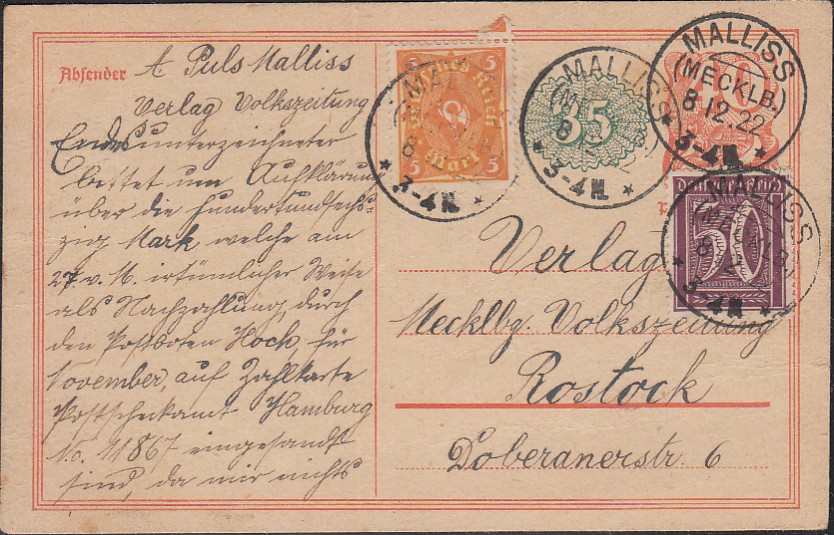 Absender A Puls Malliss
Verlag Volkszeitung
Endesunterzeichneter
bittet um Aufklärung
über die hundertundsech-
zig Mark welche am
27 v. M. irtümlicher Weise
als Nachzahlung, durch
den Postboten Hoch, für
November, auf Zahlkarte
Postscheckamt Hamburg
No. 11867 eingesandt
sind, da mir nichts
5 5
Deutsches Reich
5 Mark 5
MALLISS
(MECKLB.)
8.12.22
3-4N.
35
MALLISS
8 22
3-4N.
MALLISS
(MECKLB.)
8.12.22
3-4N.
Deutsches Reich
50
MALLISS
3-4N.
Verlag
Mecklbg. Volkszeitung
Rostock
Doberanerstr. 6